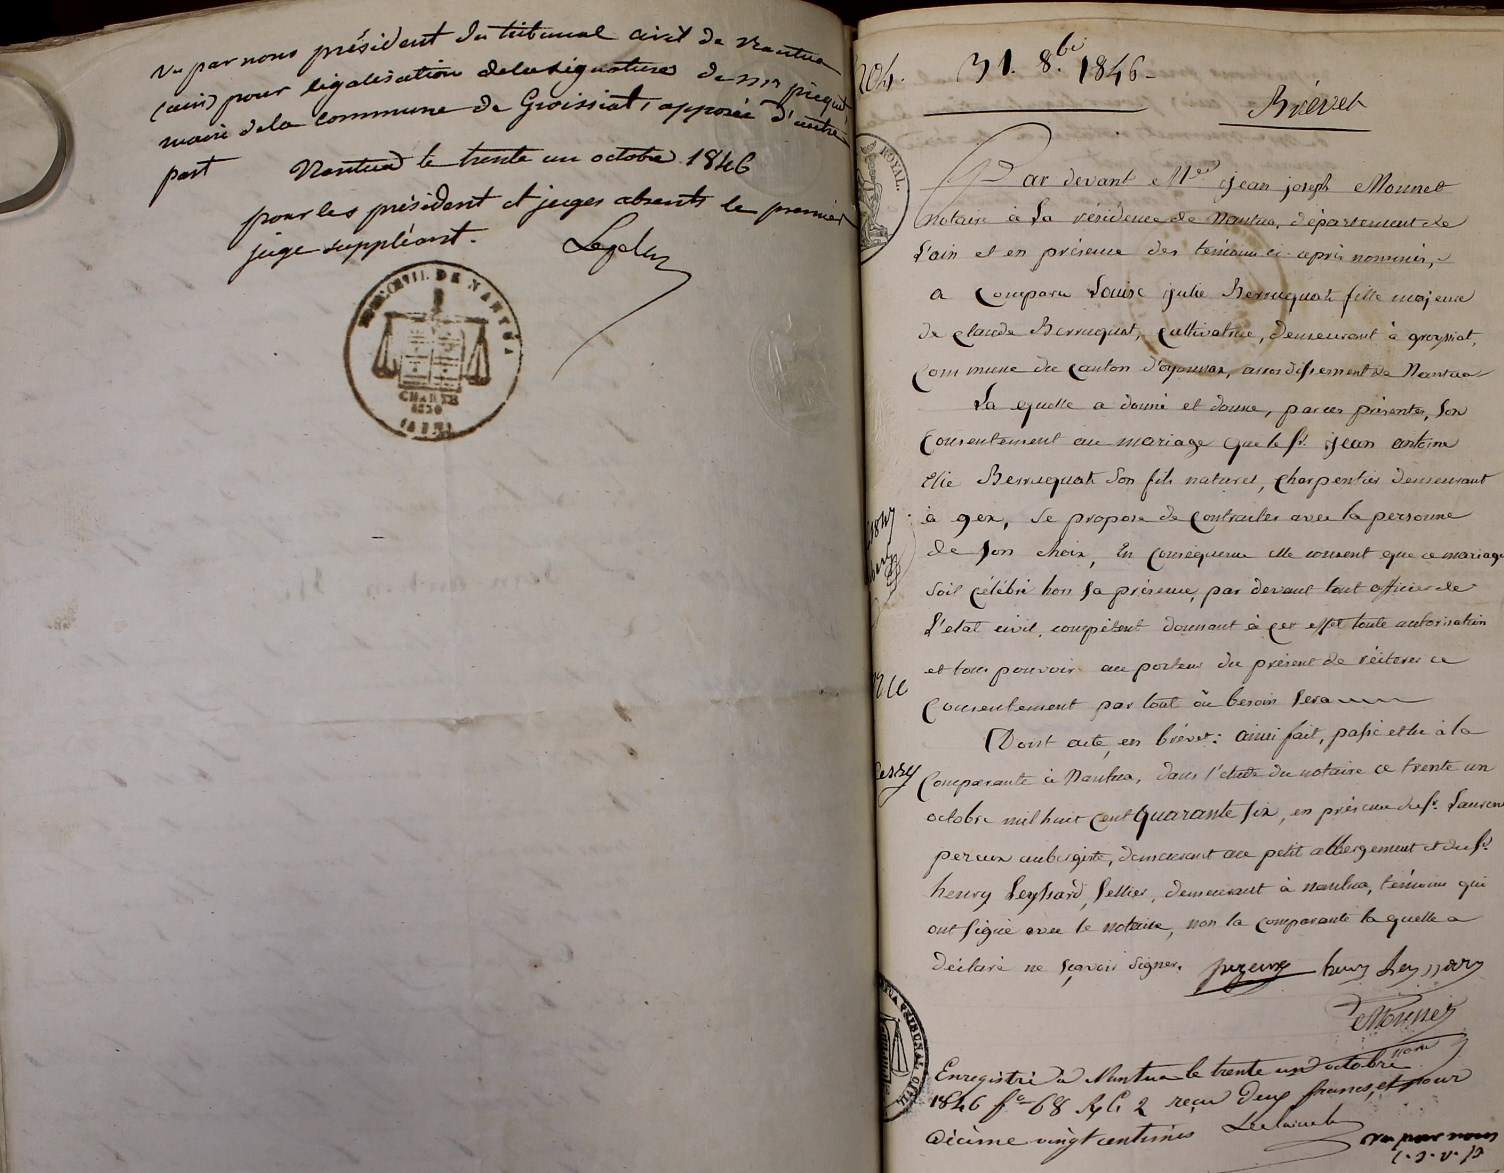 Vu par nous président du tribunal civil de Nantua
(ain) pour légalisation de la signature de Mr picquet
maire de la commune de Groissiat, apposée d'autre
part Nantua le trente un octobre 1846
pour les président et juges absents le premier
juge suppléant.
DE NANTUA
CHARTE
1830
(AIN)
204.
31. 8.bre 1846
Brévet
ROYAL.
Par devant Me jean joseph Monnet
notaire à la résidence de Nantua, département de
l'ain et en présence des témoins ci-après nommés,
a comparu Louise julie Berruquat fille majeure
de claude Berruquat, cultivatrice, demeurant à groyssiat,
commune du canton d'oyonnax, arrondissement de Nantua
La quelle a donné et donne, par ces présentes, son
consentement au mariage que le sr. jean antoine
Elie Berruquat son fils naturel, charpentier demeurant
à gex, se propose de contracter avec la personne
de son choix, En conséquence elle consent que ce mariage
soit célébré hors sa présence, par devant tout officier de
l'etat civil, compétent donnant à cet effet toute autorisation
et tous pouvoir au porteur du présent de réiterer ce
consentement par tout où besoin sera
Dont acte, en brévet: ainsi fait, passé et lu à la
comparante à Nantua, dans l'etude du notaire ce trente un
octobre mil huit cent quarante six, en présence du sr. Laurent
peraux aubergiste, demeurant au petit abbergement et du sr.
henry Leyssard, sellier, demeurant à nantua, témoins qui
ont signé avec le notaire, non la comparante la quelle a
déclaré ne sçavoir signer. henry Leyssard
Monnet
TRIBUNAL CIVIL
Enregistré à Nantua le trente un octobre
1846 fo 68 Ro C. 2 reçu deux francs, et pour
décime vingt centimes
Vu par nous
(.S.V.P)